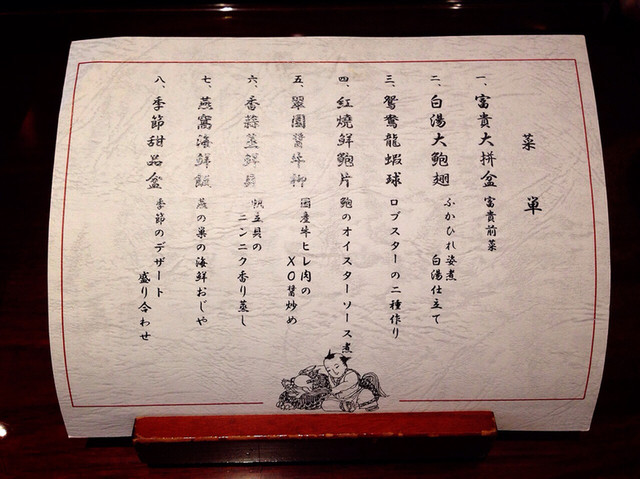 菜単
一、富貴大拼盆 富貴前菜
二、白湯大鮑翅 ふかひれ姿煮
白湯仕立て
三、鴛鴦龍蝦球 ロブスターの二種作り
四、紅燒鮮鮑片 鮑のオイスターソース煮
五、翠園醤牛柳 国産牛ヒレ肉の
XO醤炒め
六、香蒜蒸鮮貝 帆立貝の
ニンニク香り蒸し
七、燕窩海鮮飯 燕の巣の海鮮おじや
八、季節甜品盆 季節のデザート
盛り合わせ